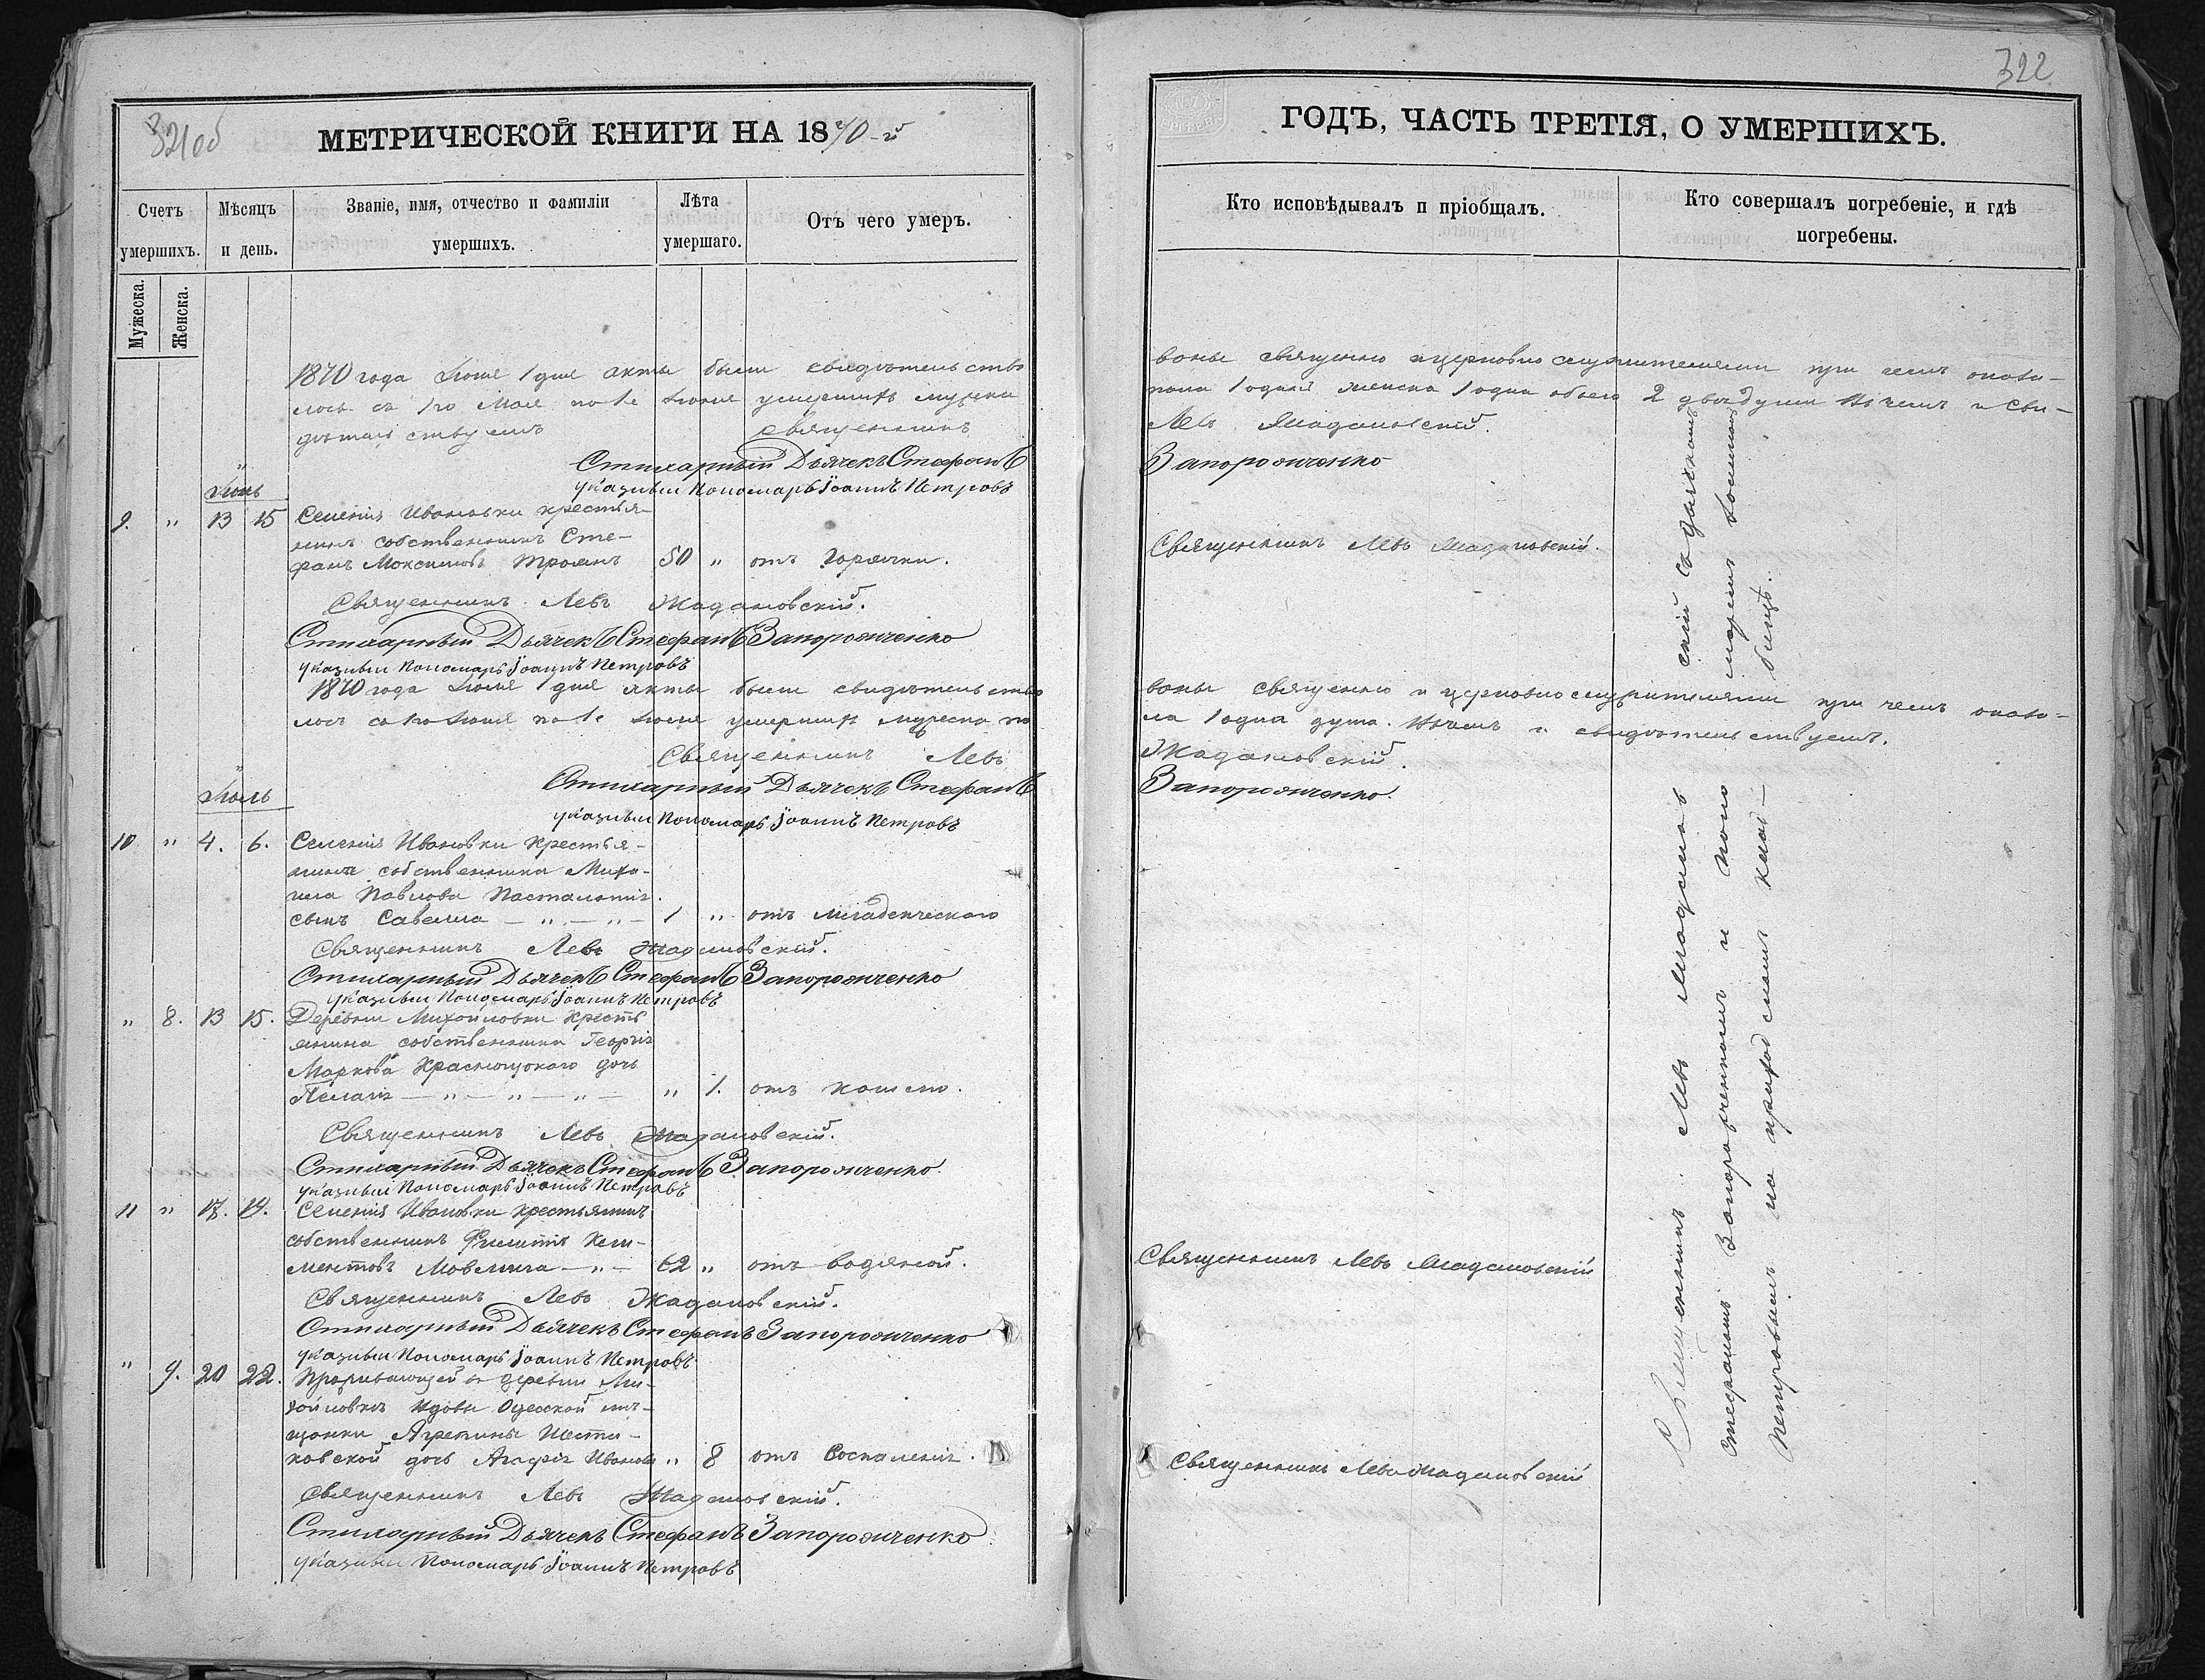 321об
МЕТРИЧЕСКОЙ КНИГИ НА 1870-й
Счетъ умершихъ.
Мѣсяцъ и день.
Званіе, имя, отчество и фамиліи умершихъ.
Лѣта умершаго.
Отъ чего умеръ.
Мужеска.
Женска.
1870 года Іюня 1 дня акты были свидѣтельство
лось съ 1го Мая по 1е Іюня умершихъ мужеска
дѣтельствуемъ Священникъ
Стихарный Дьячекъ Стефанъ
Указный Пономарь Іоаннъ Петровъ
Іюнь
9. " 13 15 Селенія Ивановки крестья-
нинъ собственникъ Сте-
фанъ Максимовъ Троянъ 50 " отъ горячки.
Священникъ Левъ Жадановскій.
Стихарный Дьячекъ Стефанъ Запорожченко
Указный Пономарь Іоаннъ Петровъ
1870 года Іюля 1 дня акты были свидѣтельство
лось съ 1го Іюня по 1е Іюля умершихъ мужеска по
Священникъ Левъ
Стихарный Дьячекъ Стефанъ
Указный Пономарь Іоаннъ Петровъ
Іюль
10 " 4. 6. Селенія Ивановки Крестья-
нина собственника Миха-
ила Павлова
сынъ Савелла — " — " — 1 " отъ младенческаго
Священникъ Левъ Жадановскій.
Стихарный Дьячекъ Стефанъ Запорожченко
Указный Пономарь Іоаннъ Петровъ
" 8. 13 15. Деревни Михайловки Кресть
янина собственника Георгія
Маркова дочь
Пелагія — " — " — " — " 1. отъ кашлю.
Священникъ Левъ Жадановскій.
Стихарный Дьячекъ Стефанъ Запорожченко
Указный Пономарь Іоаннъ Петровъ
11 " 17. 19. Селенія Ивановки крестьянинъ
собственникъ Филиппъ Кли-
ментовъ — " — 62 " отъ водяной.
Священникъ Левъ Жадановскій.
Стихарный Дьячекъ Стефанъ Запорожченко
Указный Пономарь Іоаннъ Петровъ
" 9. 20 22. Проживающей въ деревни Ми-
хайловкѣ вдовы Одесской мѣ-
щанки
дочь Агафія Иванова " 8 отъ воспаленія.
Священникъ Левъ Жадановскій.
Стихарный Дьячекъ Стефанъ Запорожченко
Указный Пономарь Іоаннъ Петровъ
322
ГОДЪ, ЧАСТЬ ТРЕТІЯ, О УМЕРШИХЪ.
Кто исповѣдывалъ и пріобщалъ.
Кто совершалъ погребеніе, и гдѣ погребены.
ваны священно и церковно служителями при чемъ оказа-
1 одна женска 1 одна обоего 2 двѣ души въ чемъ и сви-
Левъ Жадановскій.
Запорожченко
Священникъ Левъ Жадановскій.
ваны священно и церковно служителями при чемъ оказа-
ла 1 одна душа. въ чемъ и свидѣтельствуемъ.
Жадановскій.
Запорожченко.
Священникъ Левъ Жадановскій
Священникъ Левъ Жадановскій
Священникъ Левъ Жадановскій съ дьячкомъ
Стефаномъ Запорожченкомъ и пономаремъ Іоанномъ
Петровымъ на приходскомъ клад-бищѣ.